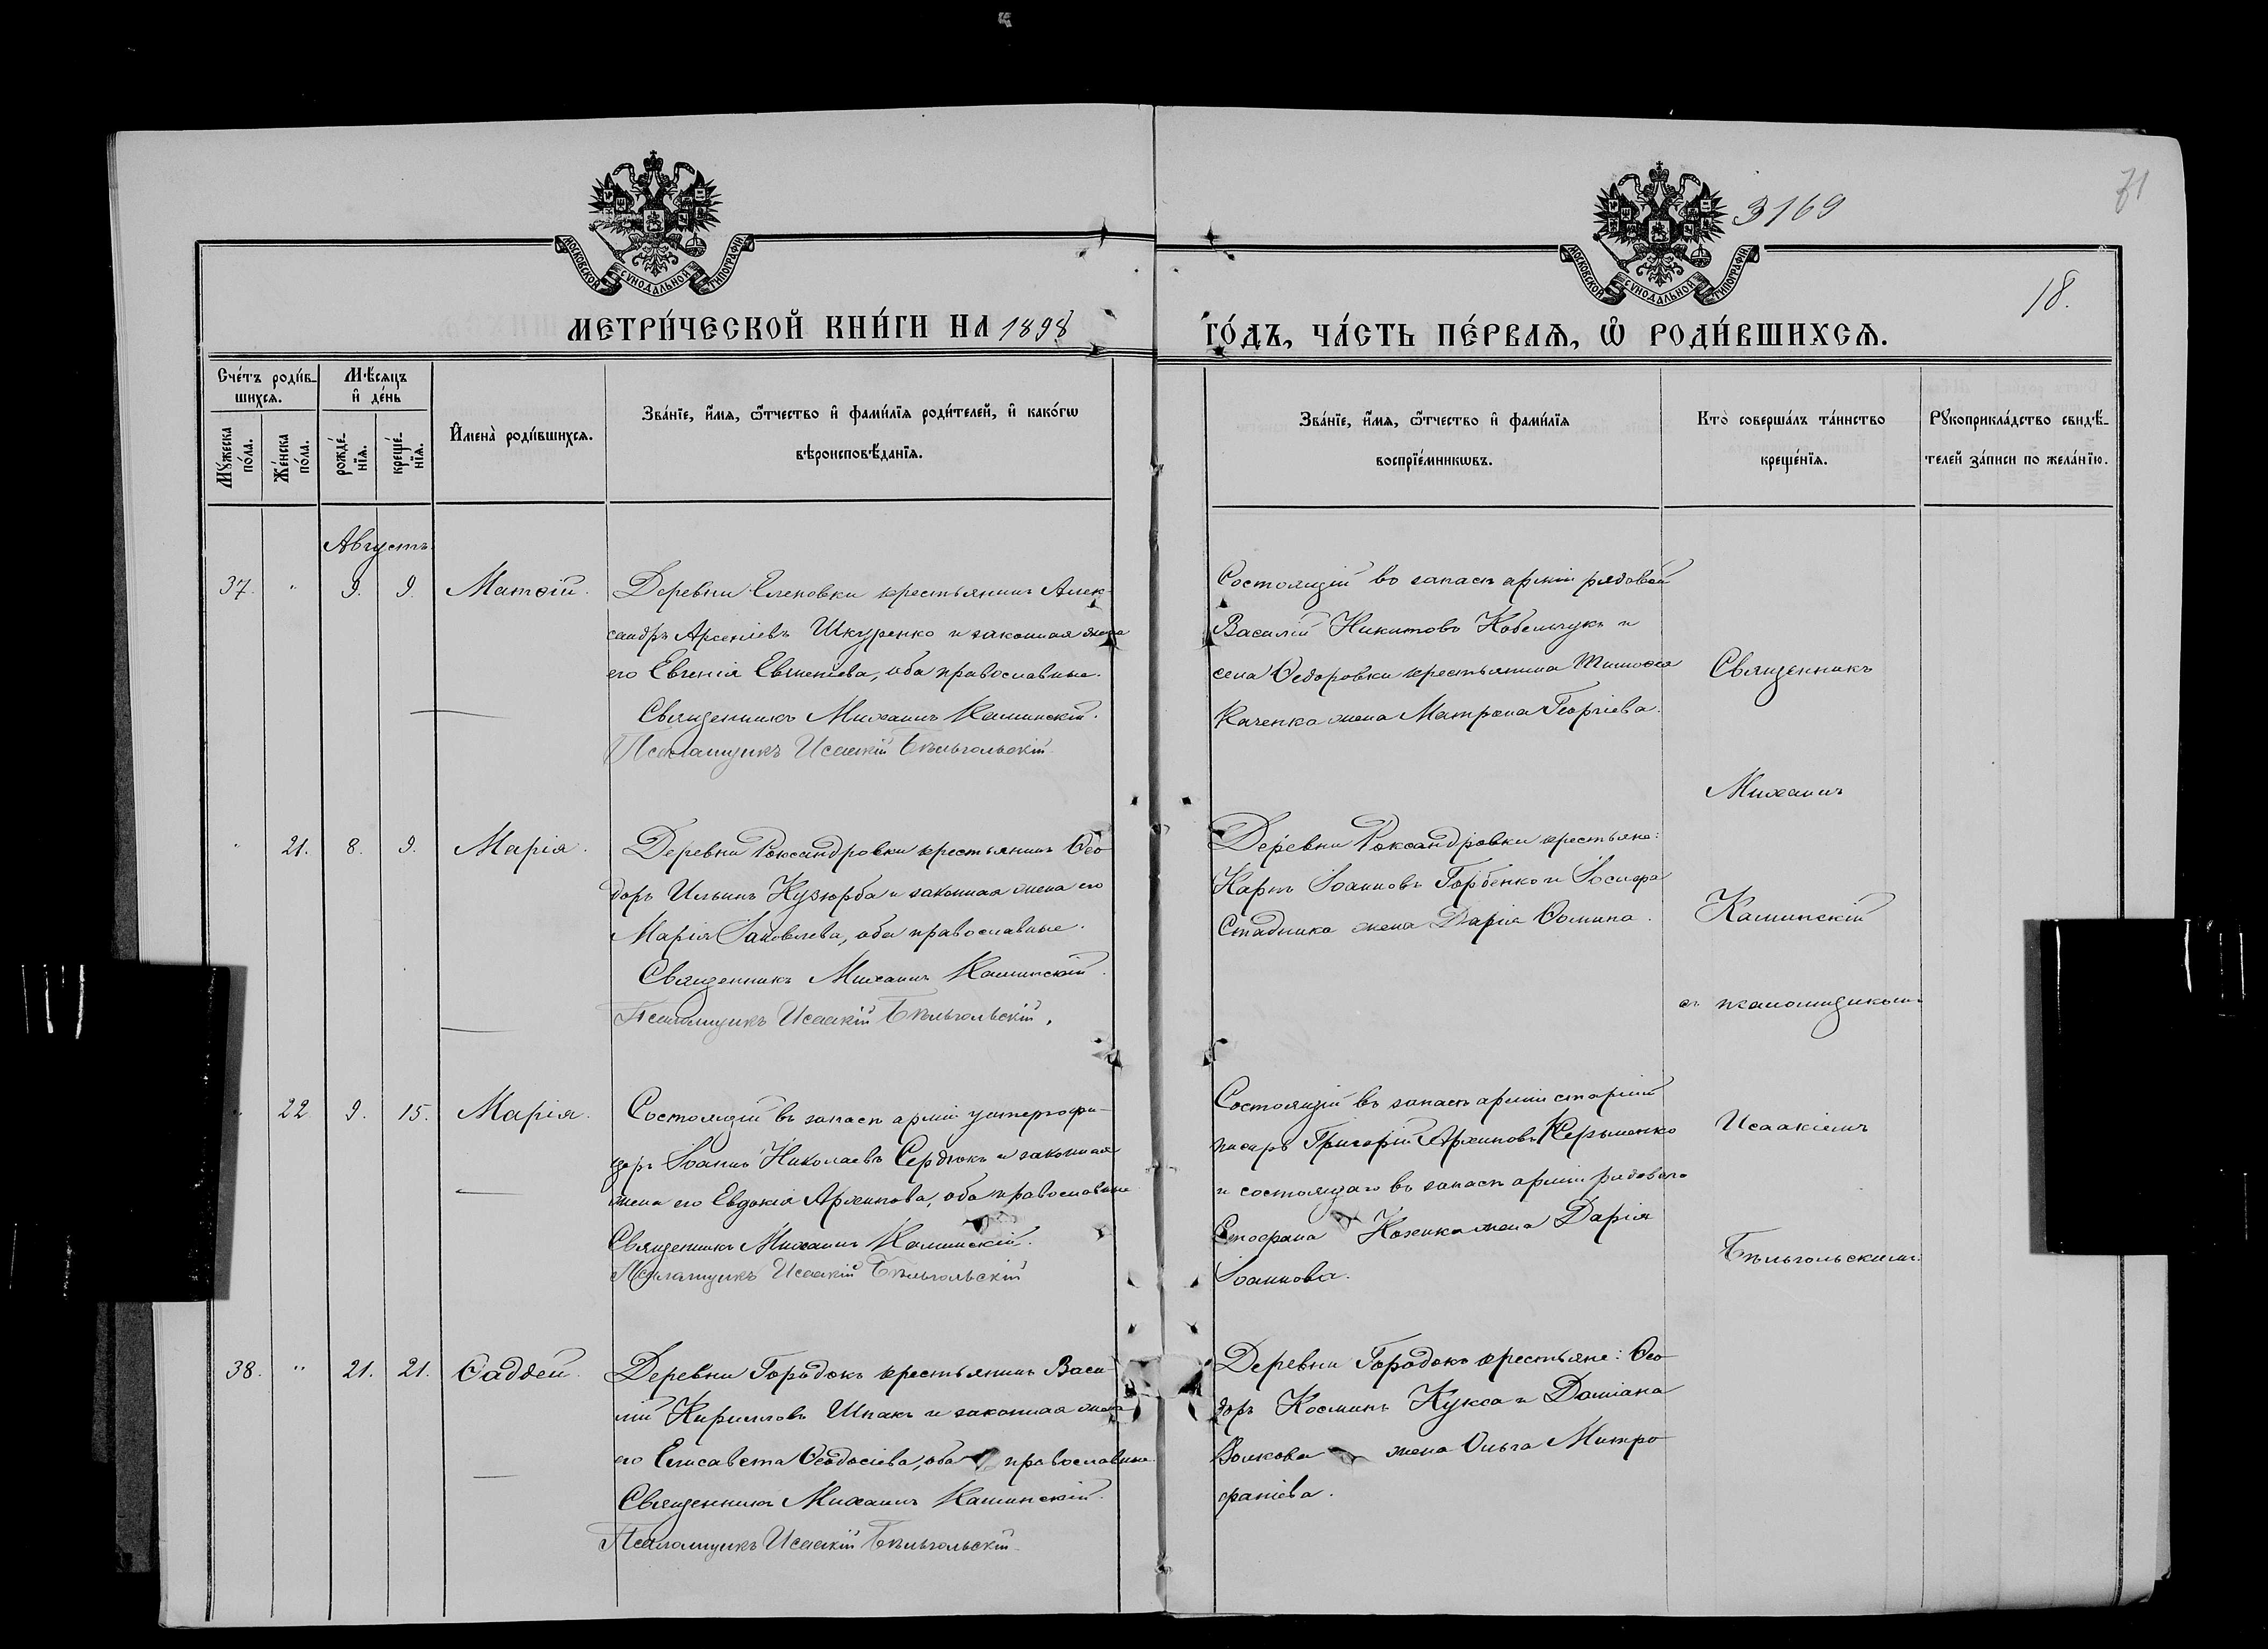 3169
71
18.
МОСКОВСКОЙ СѴНОДАЛЬНОЙ ТИПОГРАФІИ.
МОСКОВСКОЙ СѴНОДАЛЬНОЙ ТИПОГРАФІИ.
МЕТРИ́ЧЕСКОЙ КНИ́ГИ НА 1898
ГО́ДЪ, ЧА́СТЬ ПЕ́РВАѦ, Ѡ҆ РОДИ́ВШИХСѦ.
Сче́тъ роди́в-
шихсѧ.
Мꙋ́жеска по́ла.
Же́нска по́ла.
Мѣ́сѧцъ
и҆ де́нь
рожде́-
нїѧ.
креще́-
нїѧ.
И҆мена̀ роди́вшихсѧ.
Зва́нїе, и҆́мѧ, ѻ҆́тчество и҆ фами́лїѧ роди́телей, и҆ како́гѡ
вѣроисповѣ́данїѧ.
Зва́нїе, и҆́мѧ, ѻ҆́тчество и҆ фами́лїѧ
воспрїе́мникѡвъ.
Кто̀ соверша́лъ та́инство
креще́нїѧ.
Рꙋкоприкла́дство свидѣ́-
телей за́писи по жела́нїю.
Августъ.
37. " 9. 9. Матѳій.
Деревни Еленовки крестьянинъ Алек-
сандръ Арсеніевъ Шкуренко и законная жена
его Евгенія Евменіева, оба православные.
Священникъ Михаилъ Каминскій.
Псаломщикъ Исаакій Бѣльгольскій
Состоящій въ запасѣ арміи рядовой
Василій Никитовъ Кобельчукъ и
села Ѳедоровки крестьянина Тимоѳея
Каченка жена Матрона Георгіева.
" 21. 8. 9. Марія.
Деревни Роксандровки крестьянинъ Ѳео
доръ Ильинъ Кузюрба и законная жена его
Марія Іаковлева, оба православные.
Священникъ Михаилъ Каминскій.
Псаломщикъ Исаакій Бѣльгольскій.
Деревни Роксандровки крестьяне:
Карпъ Іоанновъ Горбенко и Іосифа
Стадника жена Дарія Ѳомина.
22 9. 15. Марія.
Состоящій въ запасѣ арміи унтерофи-
церъ Іоаннъ Николаевъ Сердюкъ и законная
жена его Евдокія Архипова, оба православные
Священникъ Михаилъ Каминскій.
Псаломщикъ Исаакій Бѣльгольскій
Состоящій въ запасѣ арміи старшій
писарь Григорій Архиповъ
и состоящаго въ запасѣ арміи рядового
Стефана жена Дарія
Іоаннова.
38. " 21. 21. Ѳаддей.
Деревни Городокъ крестьянинъ Васи
лій Кирилловъ Шпакъ и законная жена
его Елисавета Ѳеодосіева, оба православные.
Священникъ Михаилъ Каминскій.
Псаломщикъ Исаакій Бѣльгольскій
Деревни Городокъ крестьяне: Ѳео
доръ Косминъ Кукса и Даміана
Волкова жена Ольга Митро
фанiева.
Священникъ
Михаилъ
Каминскій
съ псаломщикомъ
Исаакіемъ
Бѣльгольскимъ.